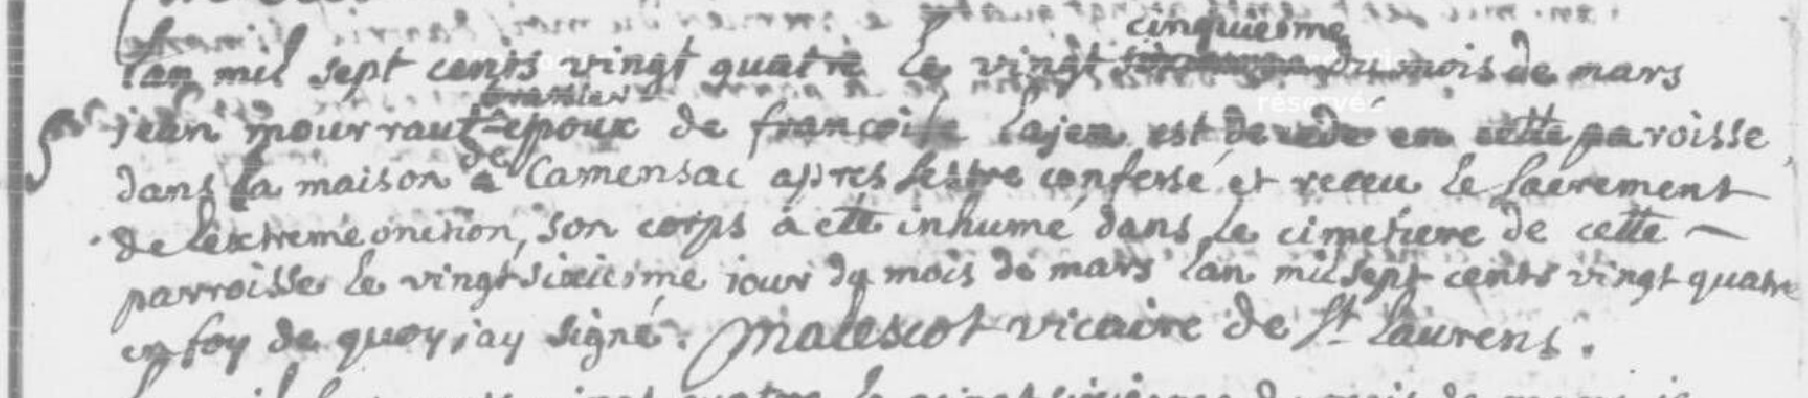 cinquiesme
lan mil sept cents vingt quatre le vingt du mois de mars
premier
jean mourraut epoux de françoise lajen est décédé en cette paroisse
dans la maison de Camensac apres sestre confessé et receu le sacrement
de lextreme onction, son corps a eté inhumé dans le cimetiere de cette
parroisse le vingt sixiesme jour du mois de mars lan mil sept cents vingt quatre
en foy de quoy jay signé. malescot vicaire de St laurens.